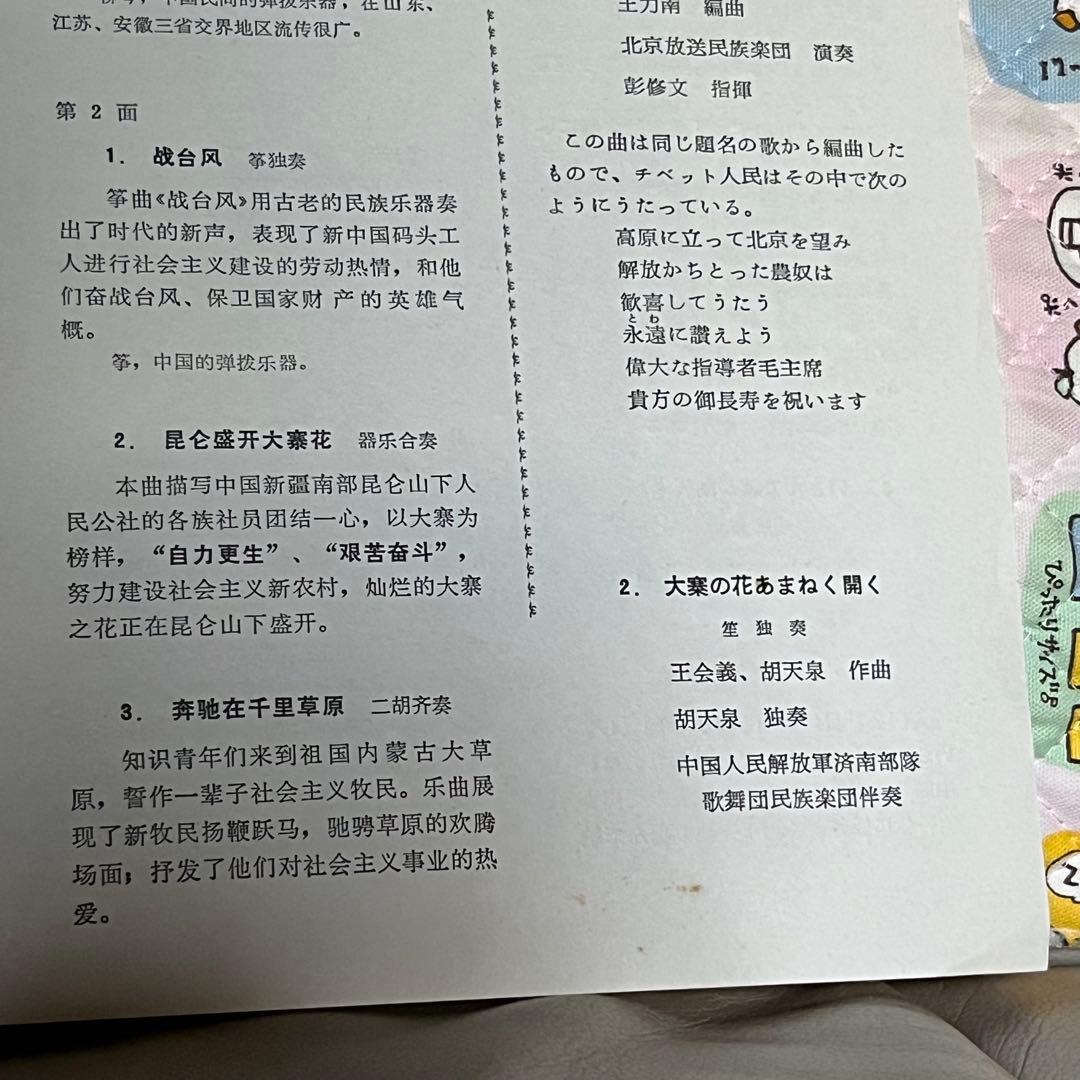 江苏、安徽三省交界地区流传很广。
第 2 面
1. 战台风 筝独奏
筝曲《战台风》用古老的民族乐器奏
出了时代的新声，表现了新中国码头工
人进行社会主义建设的劳动热情，和他
们奋战台风、保卫国家财产的英雄气
概。
筝，中国的弹拨乐器。
2. 昆仑盛开大寨花 器乐合奏
本曲描写中国新疆南部昆仑山下人
民公社的各族社员团结一心，以大寨为
榜样，“自力更生”、“艰苦奋斗”，
努力建设社会主义新农村，灿烂的大寨
之花正在昆仑山下盛开。
3. 奔驰在千里草原 二胡齐奏
知识青年们来到祖国内蒙古大草
原，誓作一辈子社会主义牧民。乐曲展
现了新牧民扬鞭跃马，驰骋草原的欢腾
场面；抒发了他们对社会主义事业的热
爱。
王力南 編曲
北京放送民族楽団 演奏
彭修文 指揮
この曲は同じ題名の歌から編曲した
もので、チベット人民はその中で次の
ようにうたっている。
高原に立って北京を望み
解放かちとった農奴は
歓喜してうたう
とわ
永遠に讃えよう
偉大な指導者毛主席
貴方の御長寿を祝います
2. 大寨の花あまねく開く
笙 独 奏
王会義、胡天泉 作曲
胡天泉 独奏
中国人民解放軍済南部隊
歌舞団民族楽団伴奏
ぴったりサイズ